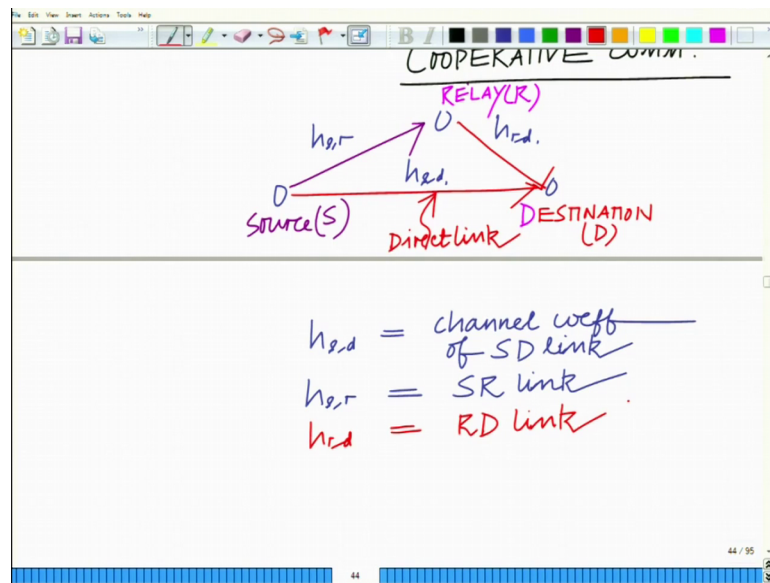 File Edit View Insert Actions Tools Help
COOPERATIVE COMM.
RELAY(R)
hs,r
hr,d.
hs,d.
Source(S)
Direct link
DESTINATION
(D)
hs,d = channel coeff
of SD link
hs,r = SR link
hr,d = RD link
44 / 95
44